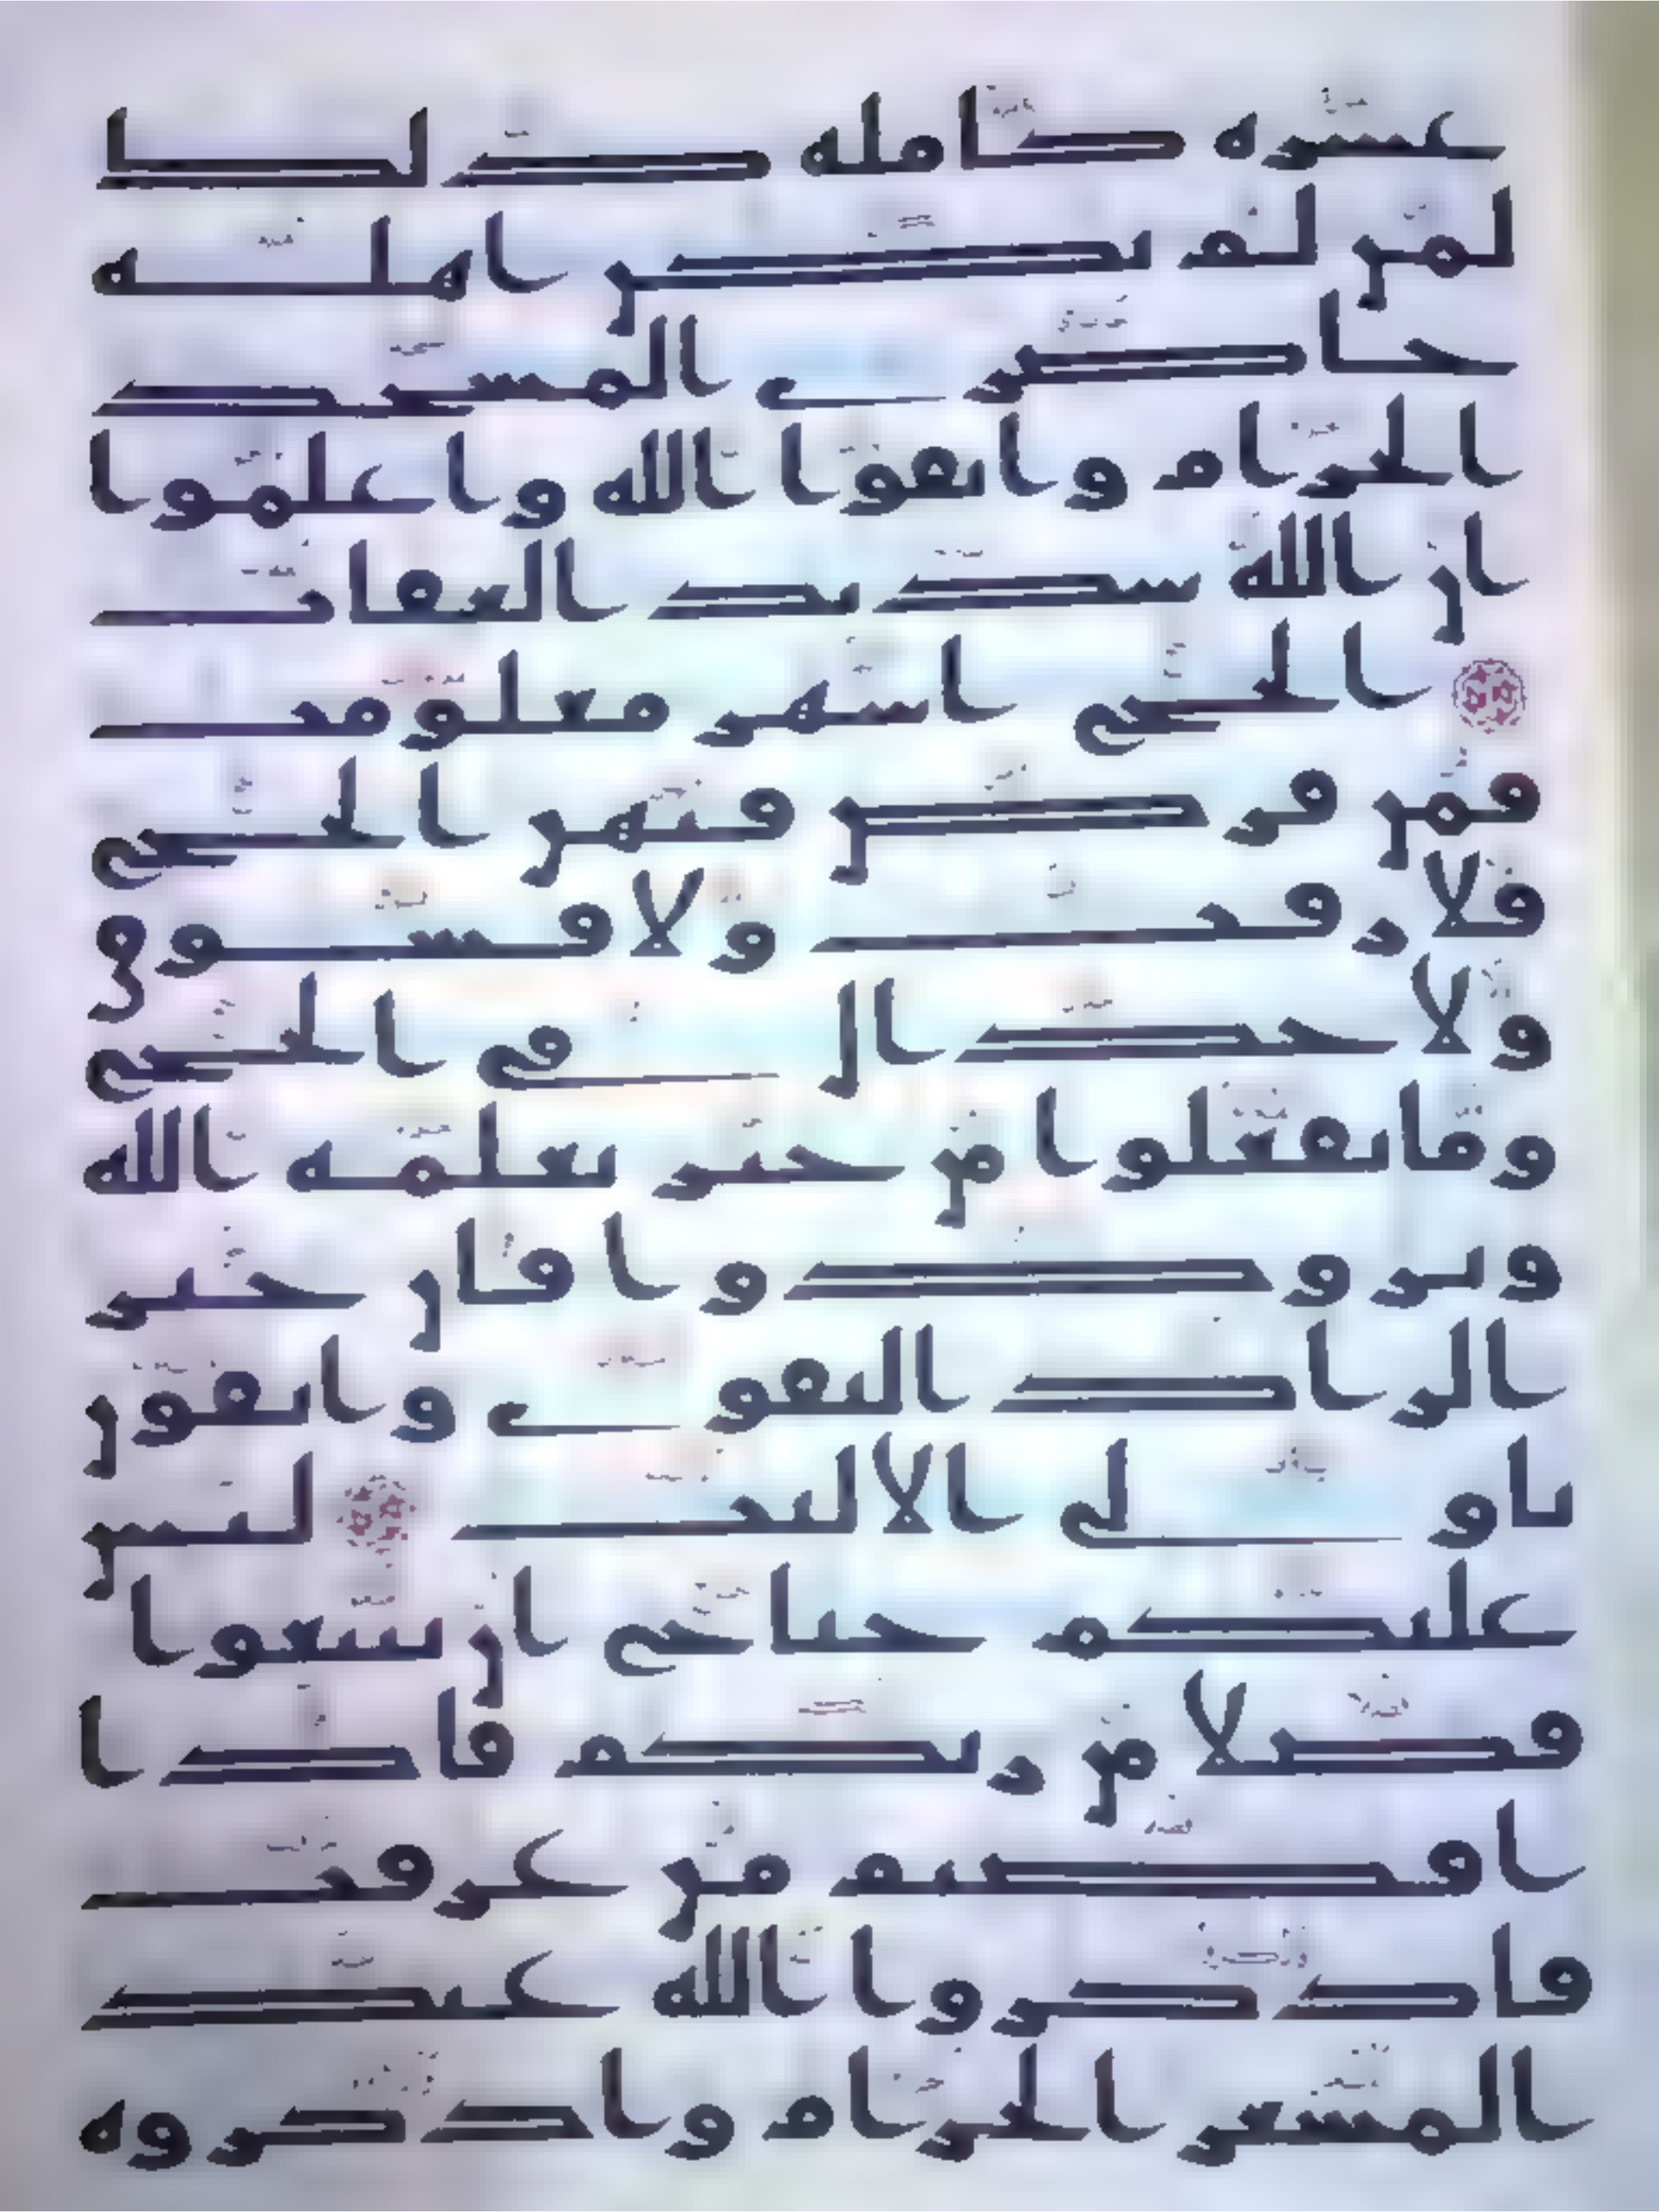 عشرة كاملة ذلك
لمن لم يكن اهله
حاضرى المسجد
الحرام واتقوا الله واعلموا
ان الله شديد العقاب
الحج اشهر معلومت
فمن فرض فيهن الحج
فلا رفث ولا فسوق
ولا جدال فى الحج
وما تفعلوا من خير يعلمه الله
وتزودوا فان خير
الزاد التقوى واتقون
ياولى الالبب ليس
عليكم جناح ان تبتغوا
فضلا من ربكم فاذا
افضتم من عرفت
فاذكروا الله عند
المشعر الحرام واذكروه